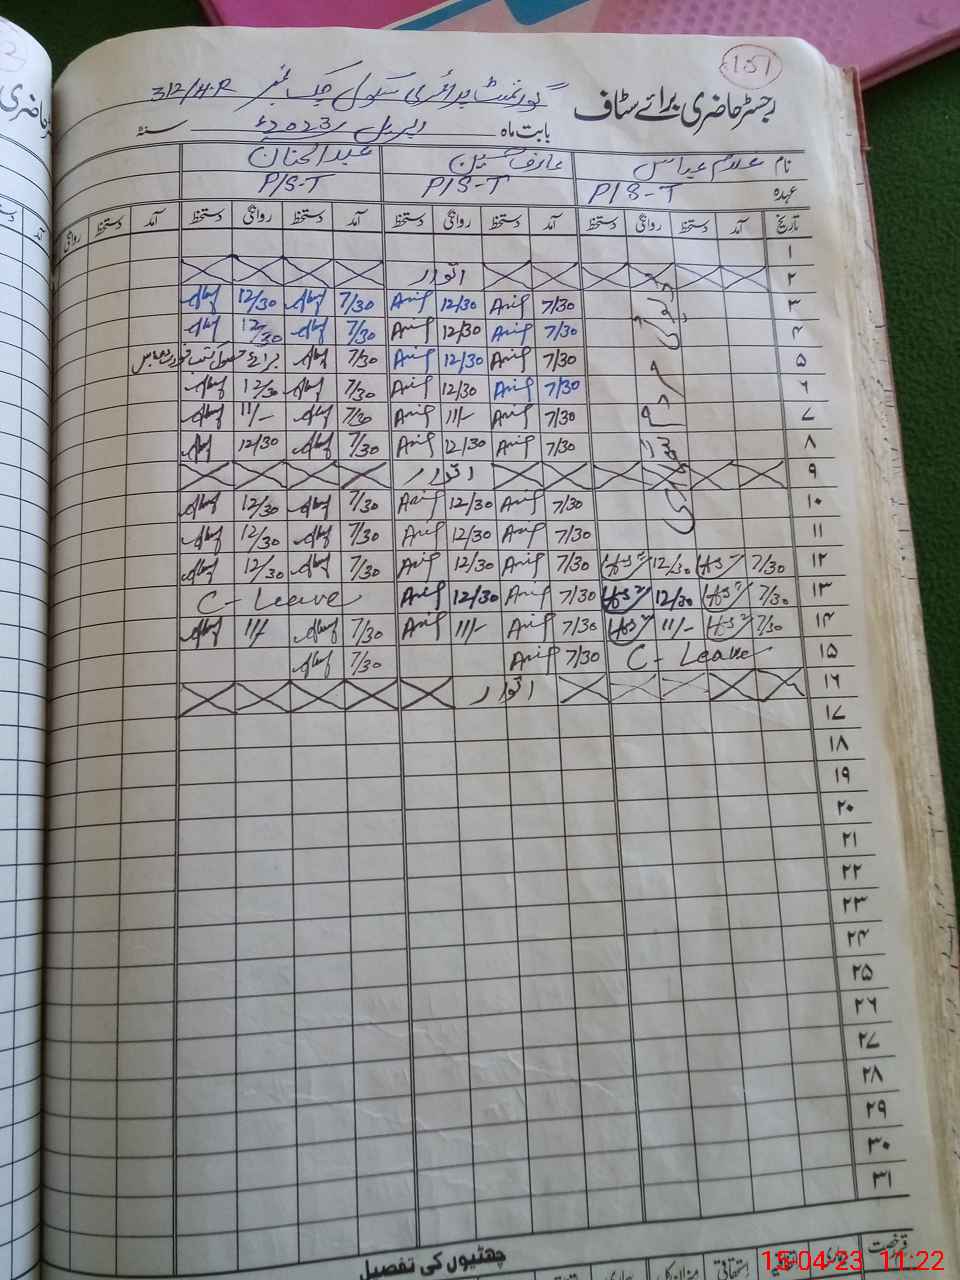 151
رجسٹر حاضری برائے سٹاف گورنمنٹ پرائمری سکول چک نمبر 312/H.R
بابت ماہ اپریل 2023ء سنہ
نام غلام عباس عارف حسین عبدالحنان
عہدہ P/S-T P/S-T P/S-T
تاریخ آمد دستخط روانگی دستخط آمد دستخط روانگی دستخط آمد دستخط روانگی دستخط آمد دستخط روانگی
۱
۲ اتوار
۳ 7/30 Arif 12/30 Arif 7/30 12/30
۴ 7/30 Arif 12/30 Arif 7/30 12/30
۵ 7/30 Arif 12/30 Arif 7/30 برائے
۶ 7/30 Arif 12/30 Arif 7/30 12/30
۷ 7/30 Arif 11/- Arif 7/30 11/-
۸ 7/30 Arif 12/30 Arif 7/30 12/30
۹ اتوار
۱۰ 7/30 Arif 12/30 Arif 7/30 12/30
۱۱ 7/30 Arif 12/30 Arif 7/30 12/30
۱۲ 7/30 12/30 7/30 Arif 12/30 Arif 7/30 12/30
۱۳ 7/30 12/30 7/30 Arif 12/30 Arif C- Leave
۱۴ 7/30 11/- 7/30 Arif 11/- Arif 7/30 11/-
۱۵ C- Leave 7/30 Arif 7/30
۱۶ اتوار
۱۷
۱۸
۱۹
۲۰
۲۱
۲۲
۲۳
۲۴
۲۵
۲۶
۲۷
۲۸
۲۹
۳۰
۳۱
چھٹیوں کی تفصیل
15-04-23 11:22